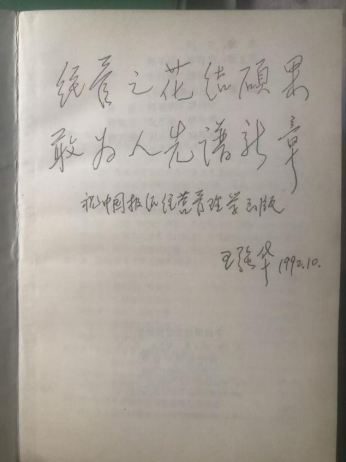 经营之花结硕果
敢为人先谱新章
祝中国报纸经营管理学出版
王强华 1992.10.